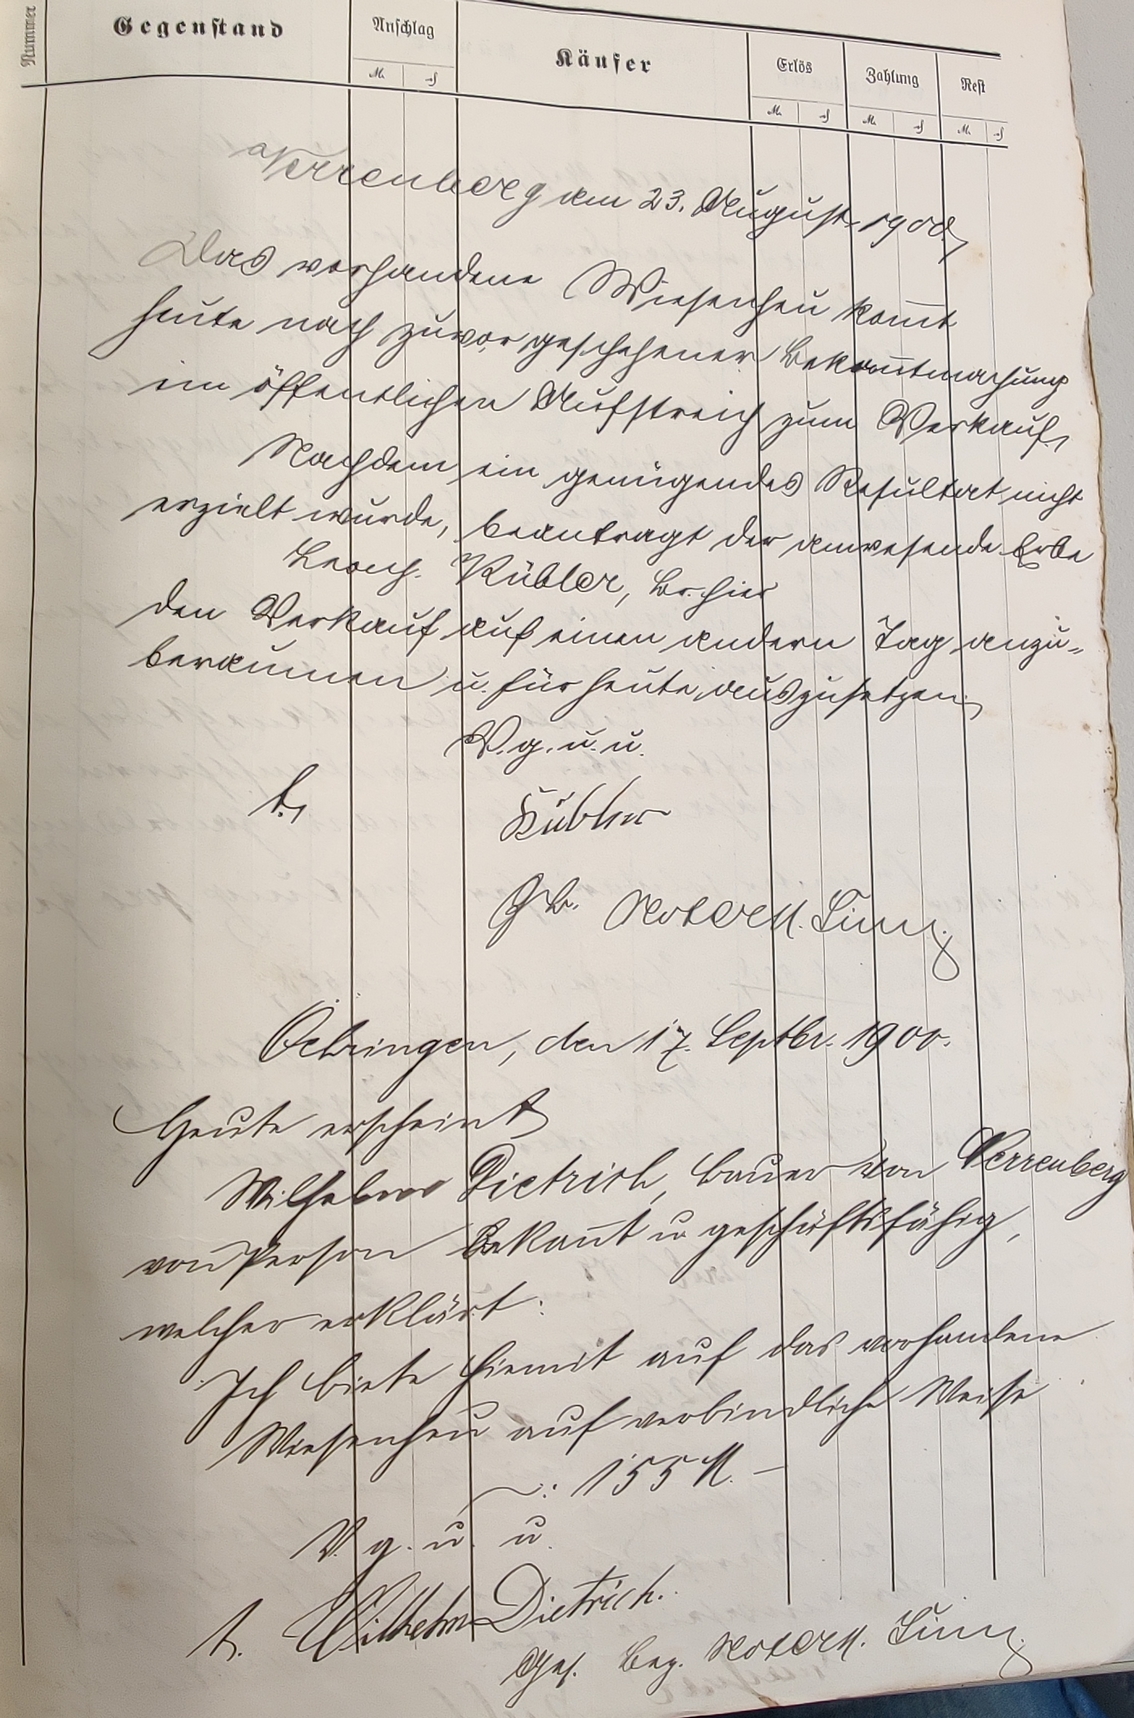 Nummer
Gegenstand
Anschlag
Käufer
Erlös
Zahlung
Rest
M. ₰ M. ₰ M. ₰ M. ₰
Verrenberg am 23. August 1900,
Das vorhandene Wiesenheu kom̄t
heute nach zuvor geschehener Bekan̄tmachung
im öffentlichen Aufstreich zum Verkauf,
Nachdem ein genügendes Resultat nicht
erzielt wurde, beantragt der anwesende Erbe
Leonh. Kübler, Br. hier
den Verkauf auf einen andern Tag anzu-
beraumen u. für heute auszusetzen,
V. g. u. u.
t,
Kübler
Öehringen, den 17. Septbr. 1900.
Heute erscheint
Wilhelm Dietrich, Bauer von Verrenberg
von Person bekan̄t u. geschäftsfähig,
welcher erklärt:
Ich biete hiemit auf das vorhandene
Wiesenheu auf verbindliche Weise
: 155 M. —
V. g. u. u.
t. Wilhelm Dietrich.